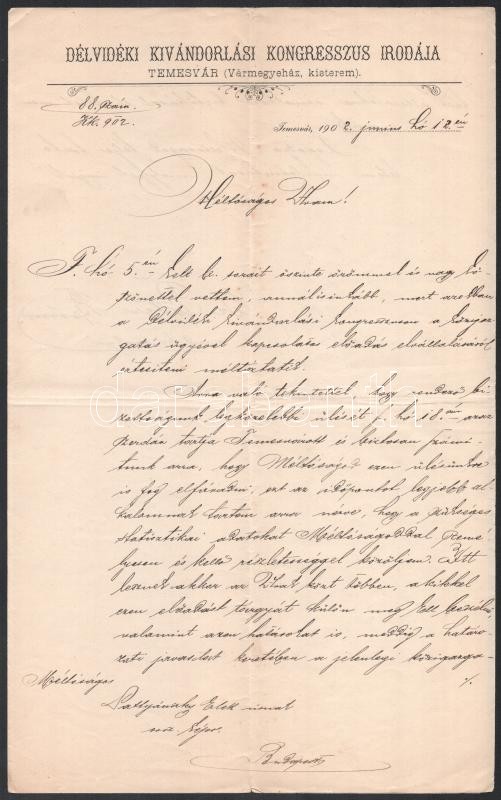 DÉLVIDÉKI KIVÁNDORLÁSI KONGRESSZUS IRODÁJA
TEMESVÁR (Vármegyeház, kisterem).
88. szám
Kk. 902.
Temesvár, 1902. junius hó 12 én
Méltóságos Uram!
F. hó 5. én kelt b. sorait őszinte örömmel és nagy kö
szönettel vettem, annálisinkább, mert azokban
a délvidéki kivándorlási kongresszuson a közigaz
gatás ügyével kapcsolatos előadás elvállalásáról
értesiteni méltóztatik.
Arra való tekintettel, hogy rendező bi
zottságunk legközelebbi ülését f. hó 18. án azaz
szerdán tartja Temesvárott és biztosan számi
tunk arra, hogy Méltóságod ezen ülésünkre
is fog elfáradni, ezt az időpontot legjobb al
kalomnak tartom arra nézve, hogy a szükséges
statisztikai adatokat Méltóságoddal szemé
lyesen és kellő részletességgel közöljem. Itt
lesznek akkor az Urak közt többen, akikkel
ezen előadást tárgyát külön meg kell beszélni
valamint azon hatásokat is, meddig a határo
zati javaslat keretében a jelenlegi közigazga-
Méltóságos
./.
Pattyánszky Elek urnak
Budapest